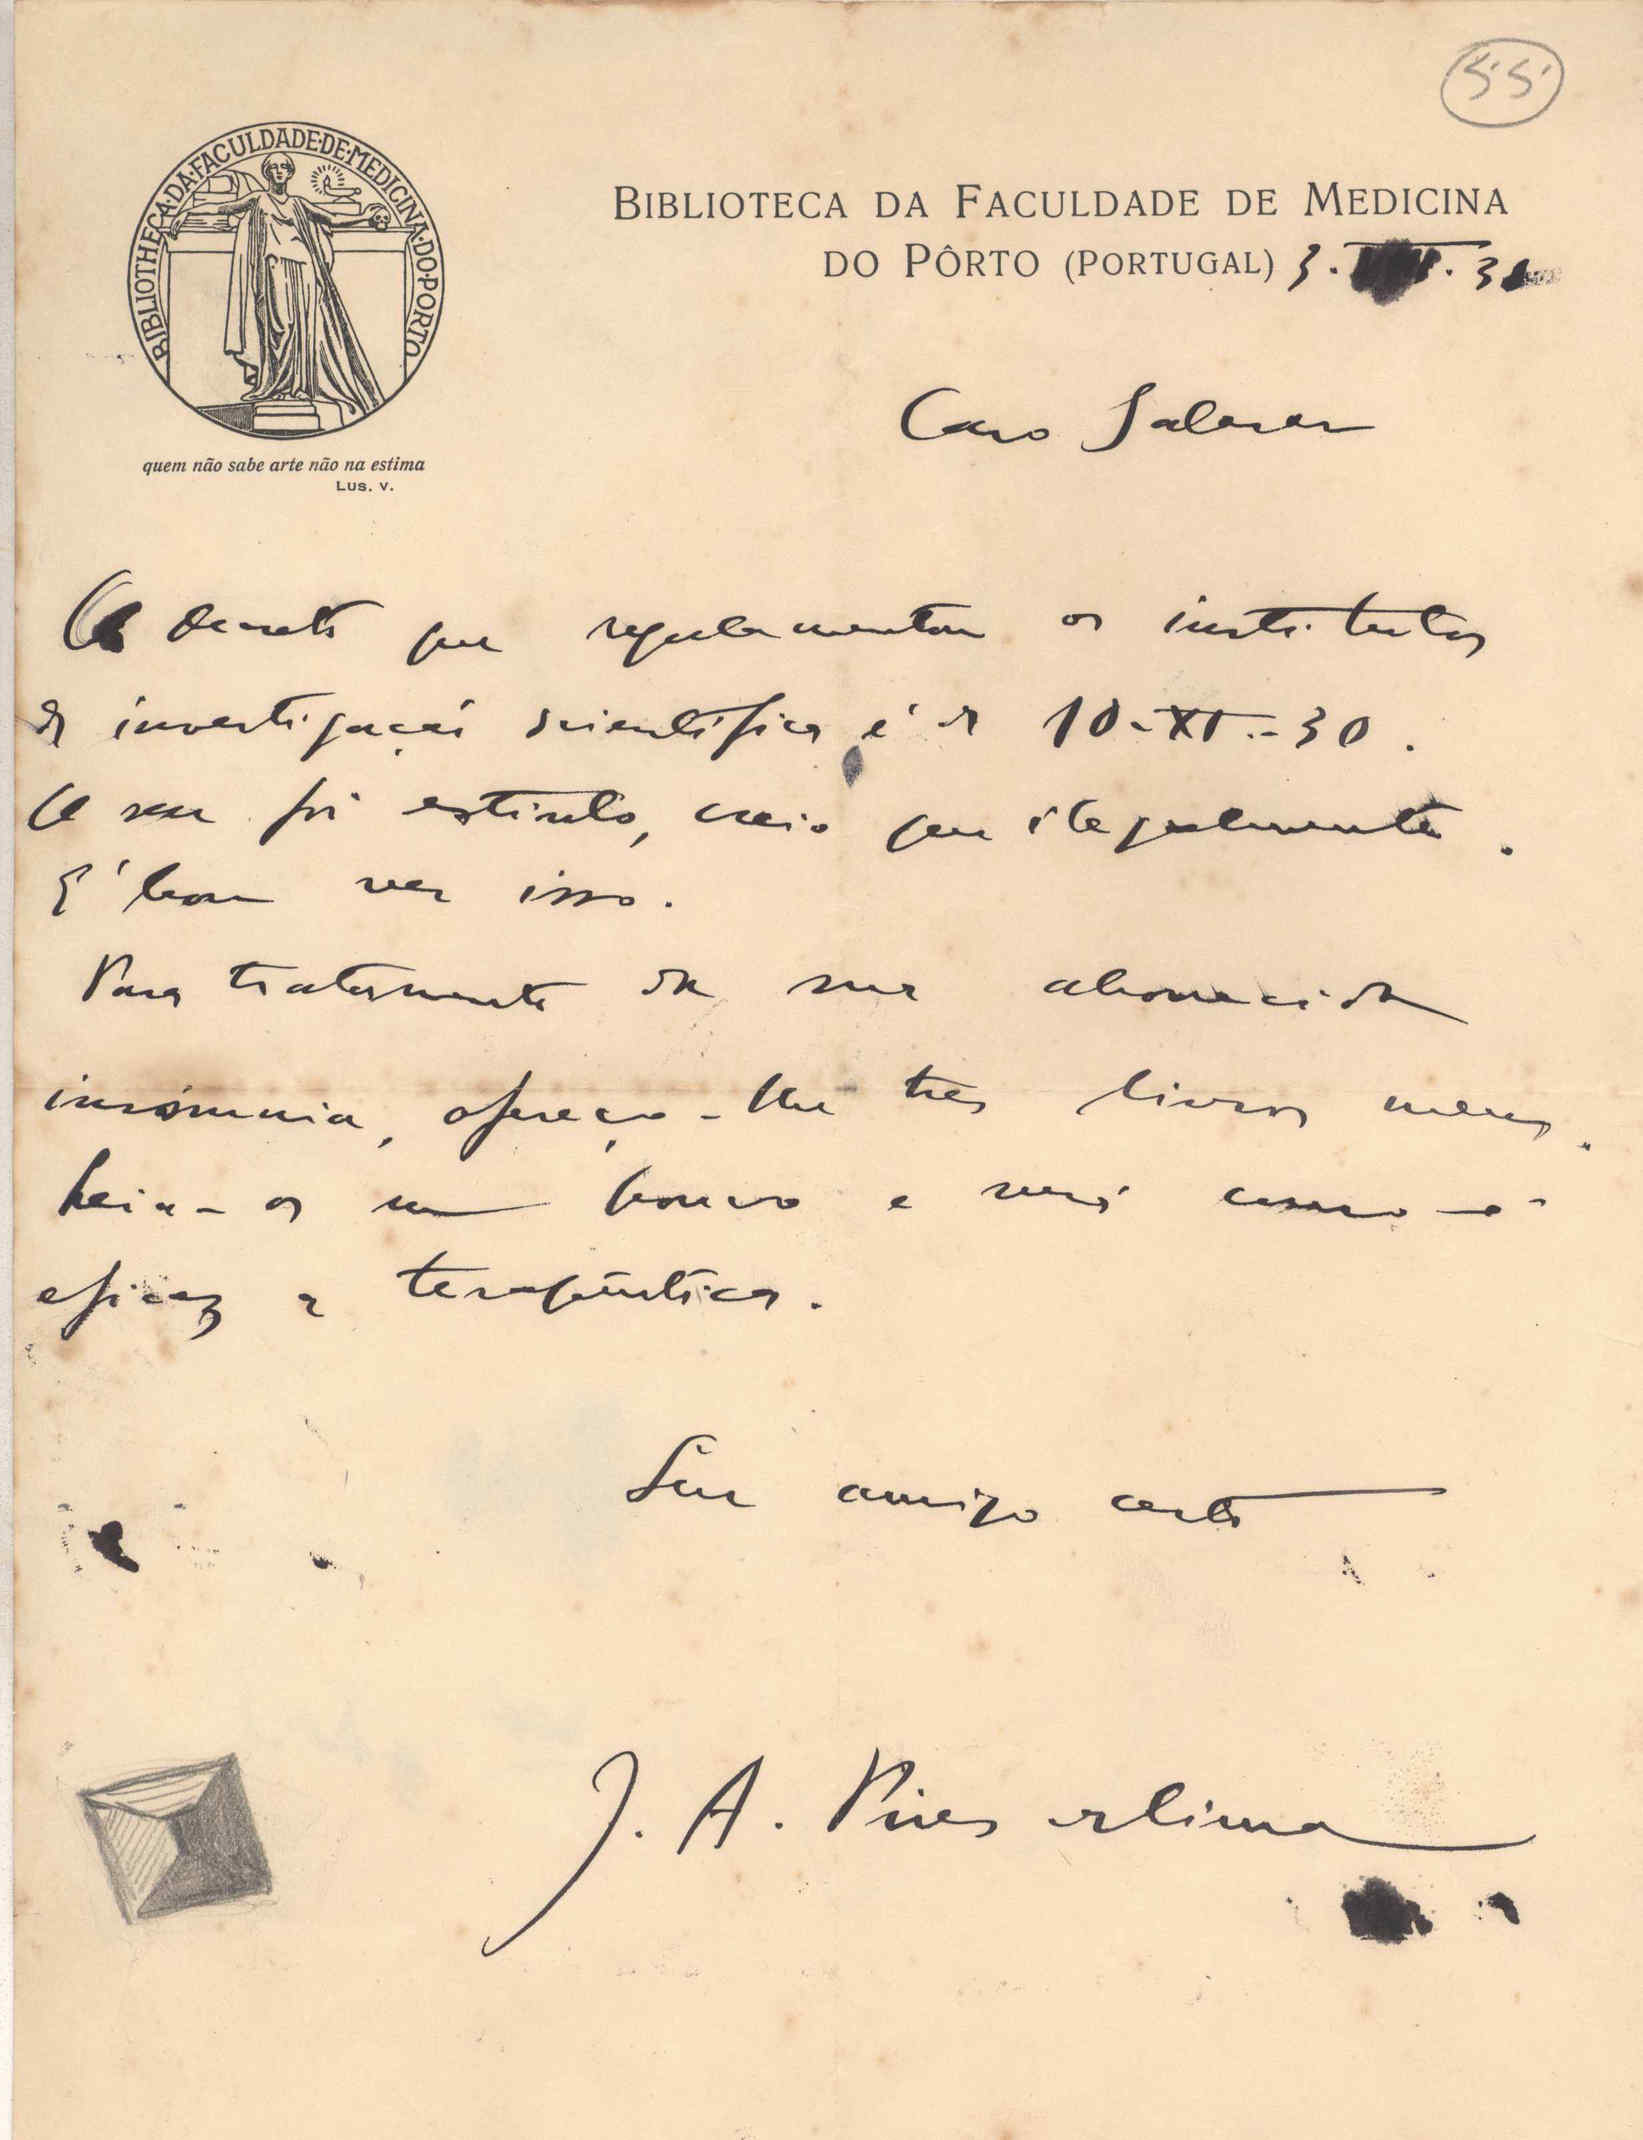 55
BIBLIOTHECA·DA·FACULDADE·DE·MEDICINA·DO·PORTO
quem não sabe arte não na estima
LUS. V.
BIBLIOTECA DA FACULDADE DE MEDICINA
DO PÔRTO (PORTUGAL) 3.
Caro
O decreto que regulamentou os institutos
de investigação scientífica é de 10-XI-30.
O seu foi extinto, creio que ilegalmente.
É bom ver isso.
Para tratamento da sua aborrecida
insómnia, ofereço-lhe três livros meus.
Leia-os um pouco e verá como é
eficaz a terapêutica.
Seu amigo certo
J. A. Pires de Lima